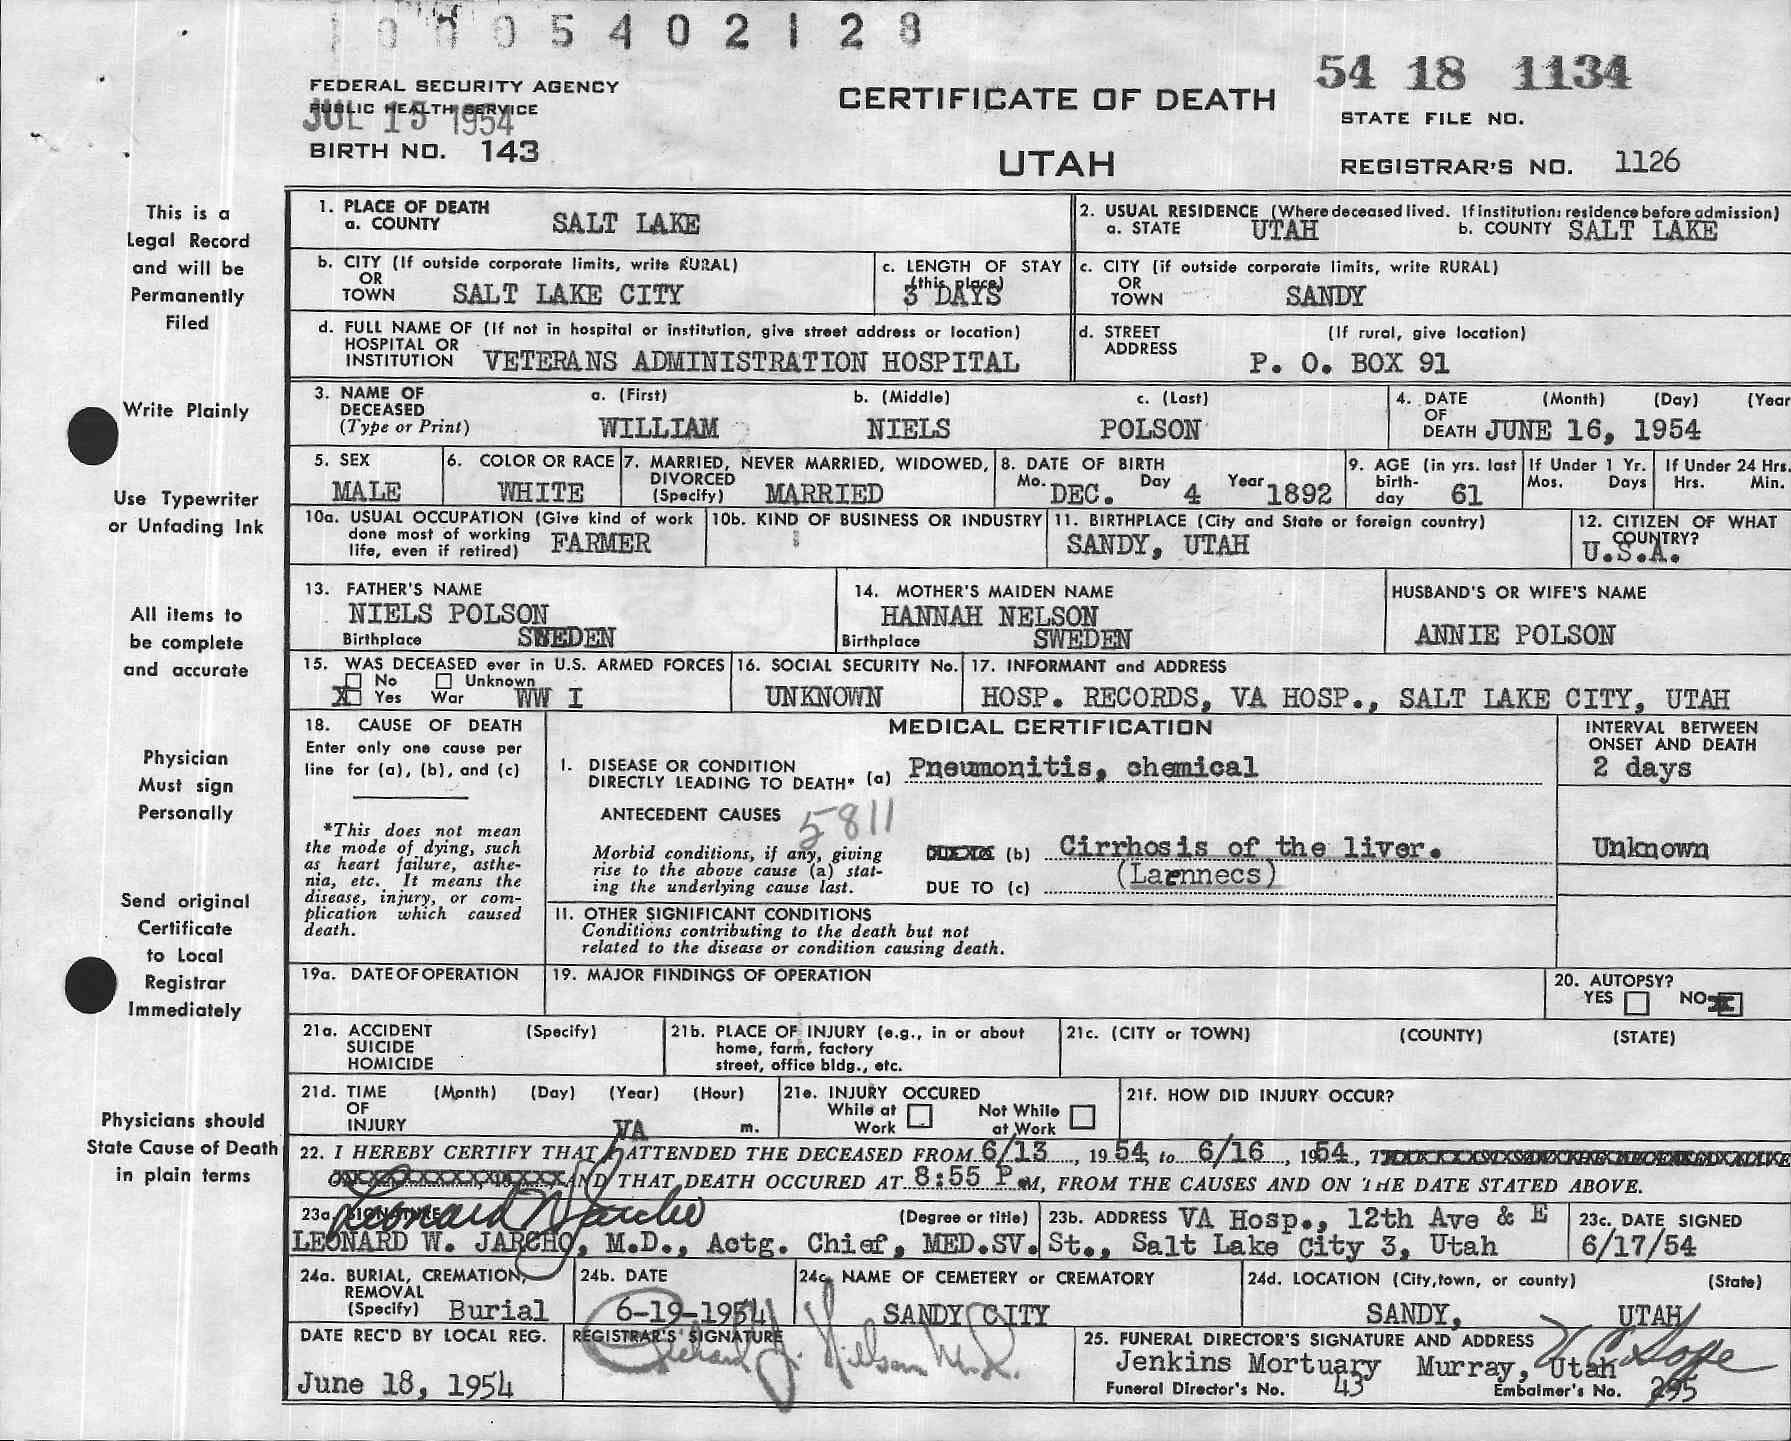 10005402128
54 18 1134
FEDERAL SECURITY AGENCY
PUBLIC HEALTH SERVICE
JUL 15 1954
BIRTH NO. 143
CERTIFICATE OF DEATH
UTAH
STATE FILE NO.
REGISTRAR'S NO. 1126
This is a
Legal Record
and will be
Permanently
Filed
Write Plainly
Use Typewriter
or Unfading Ink
All items to
be complete
and accurate
Physician
Must sign
Personally
Send original
Certificate
to Local
Registrar
Immediately
Physicians should
State Cause of Death
in plain terms
1. PLACE OF DEATH
a. COUNTY SALT LAKE
2. USUAL RESIDENCE (Where deceased lived. If institution: residence before admission)
a. STATE UTAH b. COUNTY SALT LAKE
b. CITY (If outside corporate limits, write RURAL)
OR
TOWN SALT LAKE CITY
c. LENGTH OF STAY
(this place)
3 DAYS
c. CITY (if outside corporate limits, write RURAL)
OR
TOWN SANDY
d. FULL NAME OF (If not in hospital or institution, give street address or location)
HOSPITAL OR
INSTITUTION VETERANS ADMINISTRATION HOSPITAL
d. STREET (If rural, give location)
ADDRESS P. O. BOX 91
3. NAME OF a. (First) b. (Middle) c. (Last)
DECEASED
(Type or Print) WILLIAM NIELS POLSON
4. DATE (Month) (Day) (Year
OF
DEATH JUNE 16, 1954
5. SEX
MALE
6. COLOR OR RACE
WHITE
7. MARRIED, NEVER MARRIED, WIDOWED,
DIVORCED
(Specify) MARRIED
8. DATE OF BIRTH
Mo. DEC. Day 4 Year 1892
9. AGE (in yrs. last
birth-
day 61
If Under 1 Yr.
Mos. Days
If Under 24 Hrs.
Hrs. Min.
10a. USUAL OCCUPATION (Give kind of work
done most of working
life, even if retired) FARMER
10b. KIND OF BUSINESS OR INDUSTRY
11. BIRTHPLACE (City and State or foreign country)
SANDY, UTAH
12. CITIZEN OF WHAT
COUNTRY?
U.S.A.
13. FATHER'S NAME
NIELS POLSON
Birthplace SWEDEN
14. MOTHER'S MAIDEN NAME
HANNAH NELSON
Birthplace SWEDEN
HUSBAND'S OR WIFE'S NAME
ANNIE POLSON
15. WAS DECEASED ever in U.S. ARMED FORCES
No Unknown
X Yes War WW I
16. SOCIAL SECURITY No.
UNKNOWN
17. INFORMANT and ADDRESS
HOSP. RECORDS, VA HOSP., SALT LAKE CITY, UTAH
18. CAUSE OF DEATH
Enter only one cause per
line for (a), (b), and (c)
*This does not mean
the mode of dying, such
as heart failure, asthe-
nia, etc. It means the
disease, injury, or com-
plication which caused
death.
MEDICAL CERTIFICATION
INTERVAL BETWEEN
ONSET AND DEATH
I. DISEASE OR CONDITION
DIRECTLY LEADING TO DEATH* (a) Pneumonitis, chemical
2 days
ANTECEDENT CAUSES
5811
Morbid conditions, if any, giving
rise to the above cause (a) stat-
ing the underlying cause last.
(b) Cirrhosis of the liver.
Unknown
(Laennecs)
DUE TO (c)
II. OTHER SIGNIFICANT CONDITIONS
Conditions contributing to the death but not
related to the disease or condition causing death.
19a. DATE OF OPERATION
19. MAJOR FINDINGS OF OPERATION
20. AUTOPSY?
YES NO X
21a. ACCIDENT (Specify)
SUICIDE
HOMICIDE
21b. PLACE OF INJURY (e.g., in or about
home, farm, factory
street, office bldg., etc.
21c. (CITY or TOWN) (COUNTY) (STATE)
21d. TIME (Month) (Day) (Year) (Hour)
OF
INJURY m.
21e. INJURY OCCURED
While at Work Not While at Work
21f. HOW DID INJURY OCCUR?
VA
22. I HEREBY CERTIFY THAT ATTENDED THE DECEASED FROM 6/13, 1954, to 6/16, 1954,
AND THAT DEATH OCCURED AT 8:55 P.M, FROM THE CAUSES AND ON THE DATE STATED ABOVE.
23a. SIGNATURE Leonard W Jarcho (Degree or title)
LEONARD W. JARCHO, M.D., Actg. Chief, MED.SV.
23b. ADDRESS VA Hosp., 12th Ave & E
St., Salt Lake City 3, Utah
23c. DATE SIGNED
6/17/54
24a. BURIAL, CREMATION,
REMOVAL
(Specify) Burial
24b. DATE
6-19-1954
24c. NAME OF CEMETERY or CREMATORY
SANDY CITY
24d. LOCATION (City, town, or county) (State)
SANDY, UTAH
DATE REC'D BY LOCAL REG.
June 18, 1954
REGISTRAR'S SIGNATURE
25. FUNERAL DIRECTOR'S SIGNATURE AND ADDRESS
Jenkins Mortuary Murray, Utah
Funeral Director's No. 43 Embalmer's No. 295